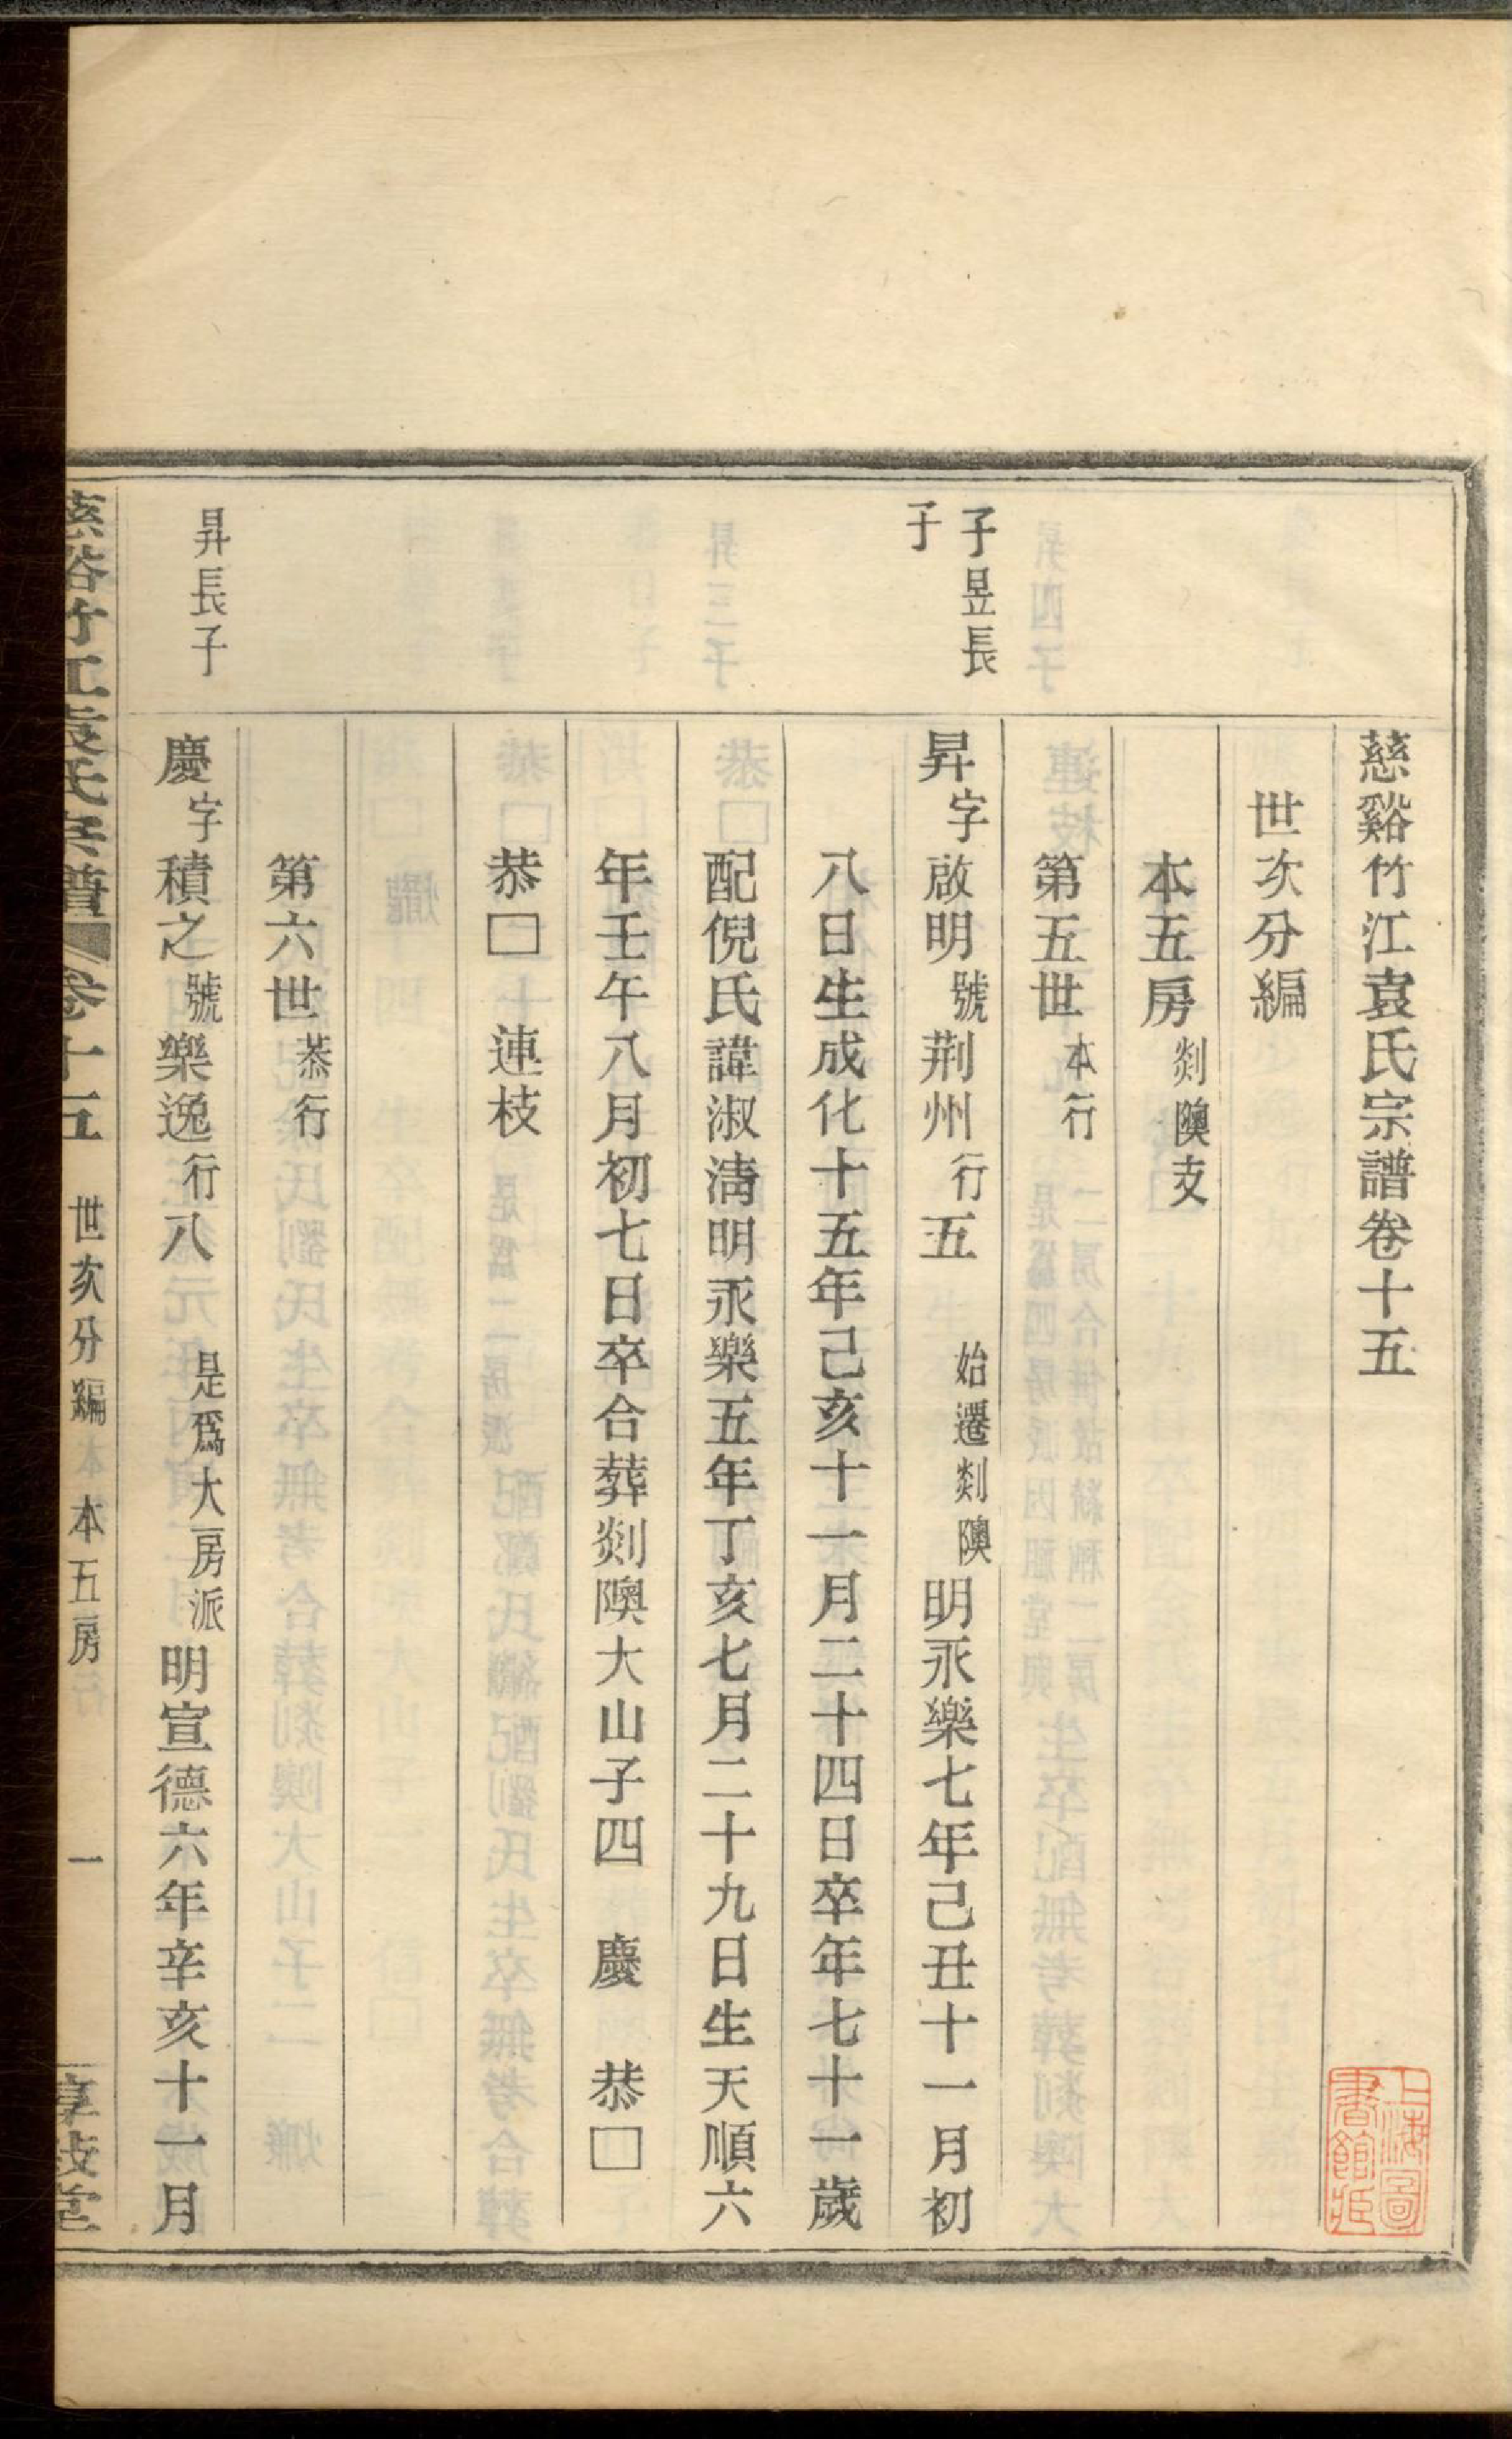 慈谿竹江袁氏宗譜卷十五
世次分編
本五房剡隩支
第五世本行
子昱長
子
昇字啟明號荆州行五　始遷剡隩明永樂七年己丑十一月初
八日生成化十五年己亥十一月二十四日卒年七十一歲
配倪氏諱淑清明永樂五年丁亥七月二十九日生天順六
年壬午八月初七日卒合葬剡隩大山子四　慶　恭□
恭□　連枝
第六世恭行
昇長子
慶字積之號樂逸行八　是爲大房派明宣德六年辛亥十一月
慈谿竹江袁氏宗譜　卷十五　世次分編　本五房　一
上海圖書館藏